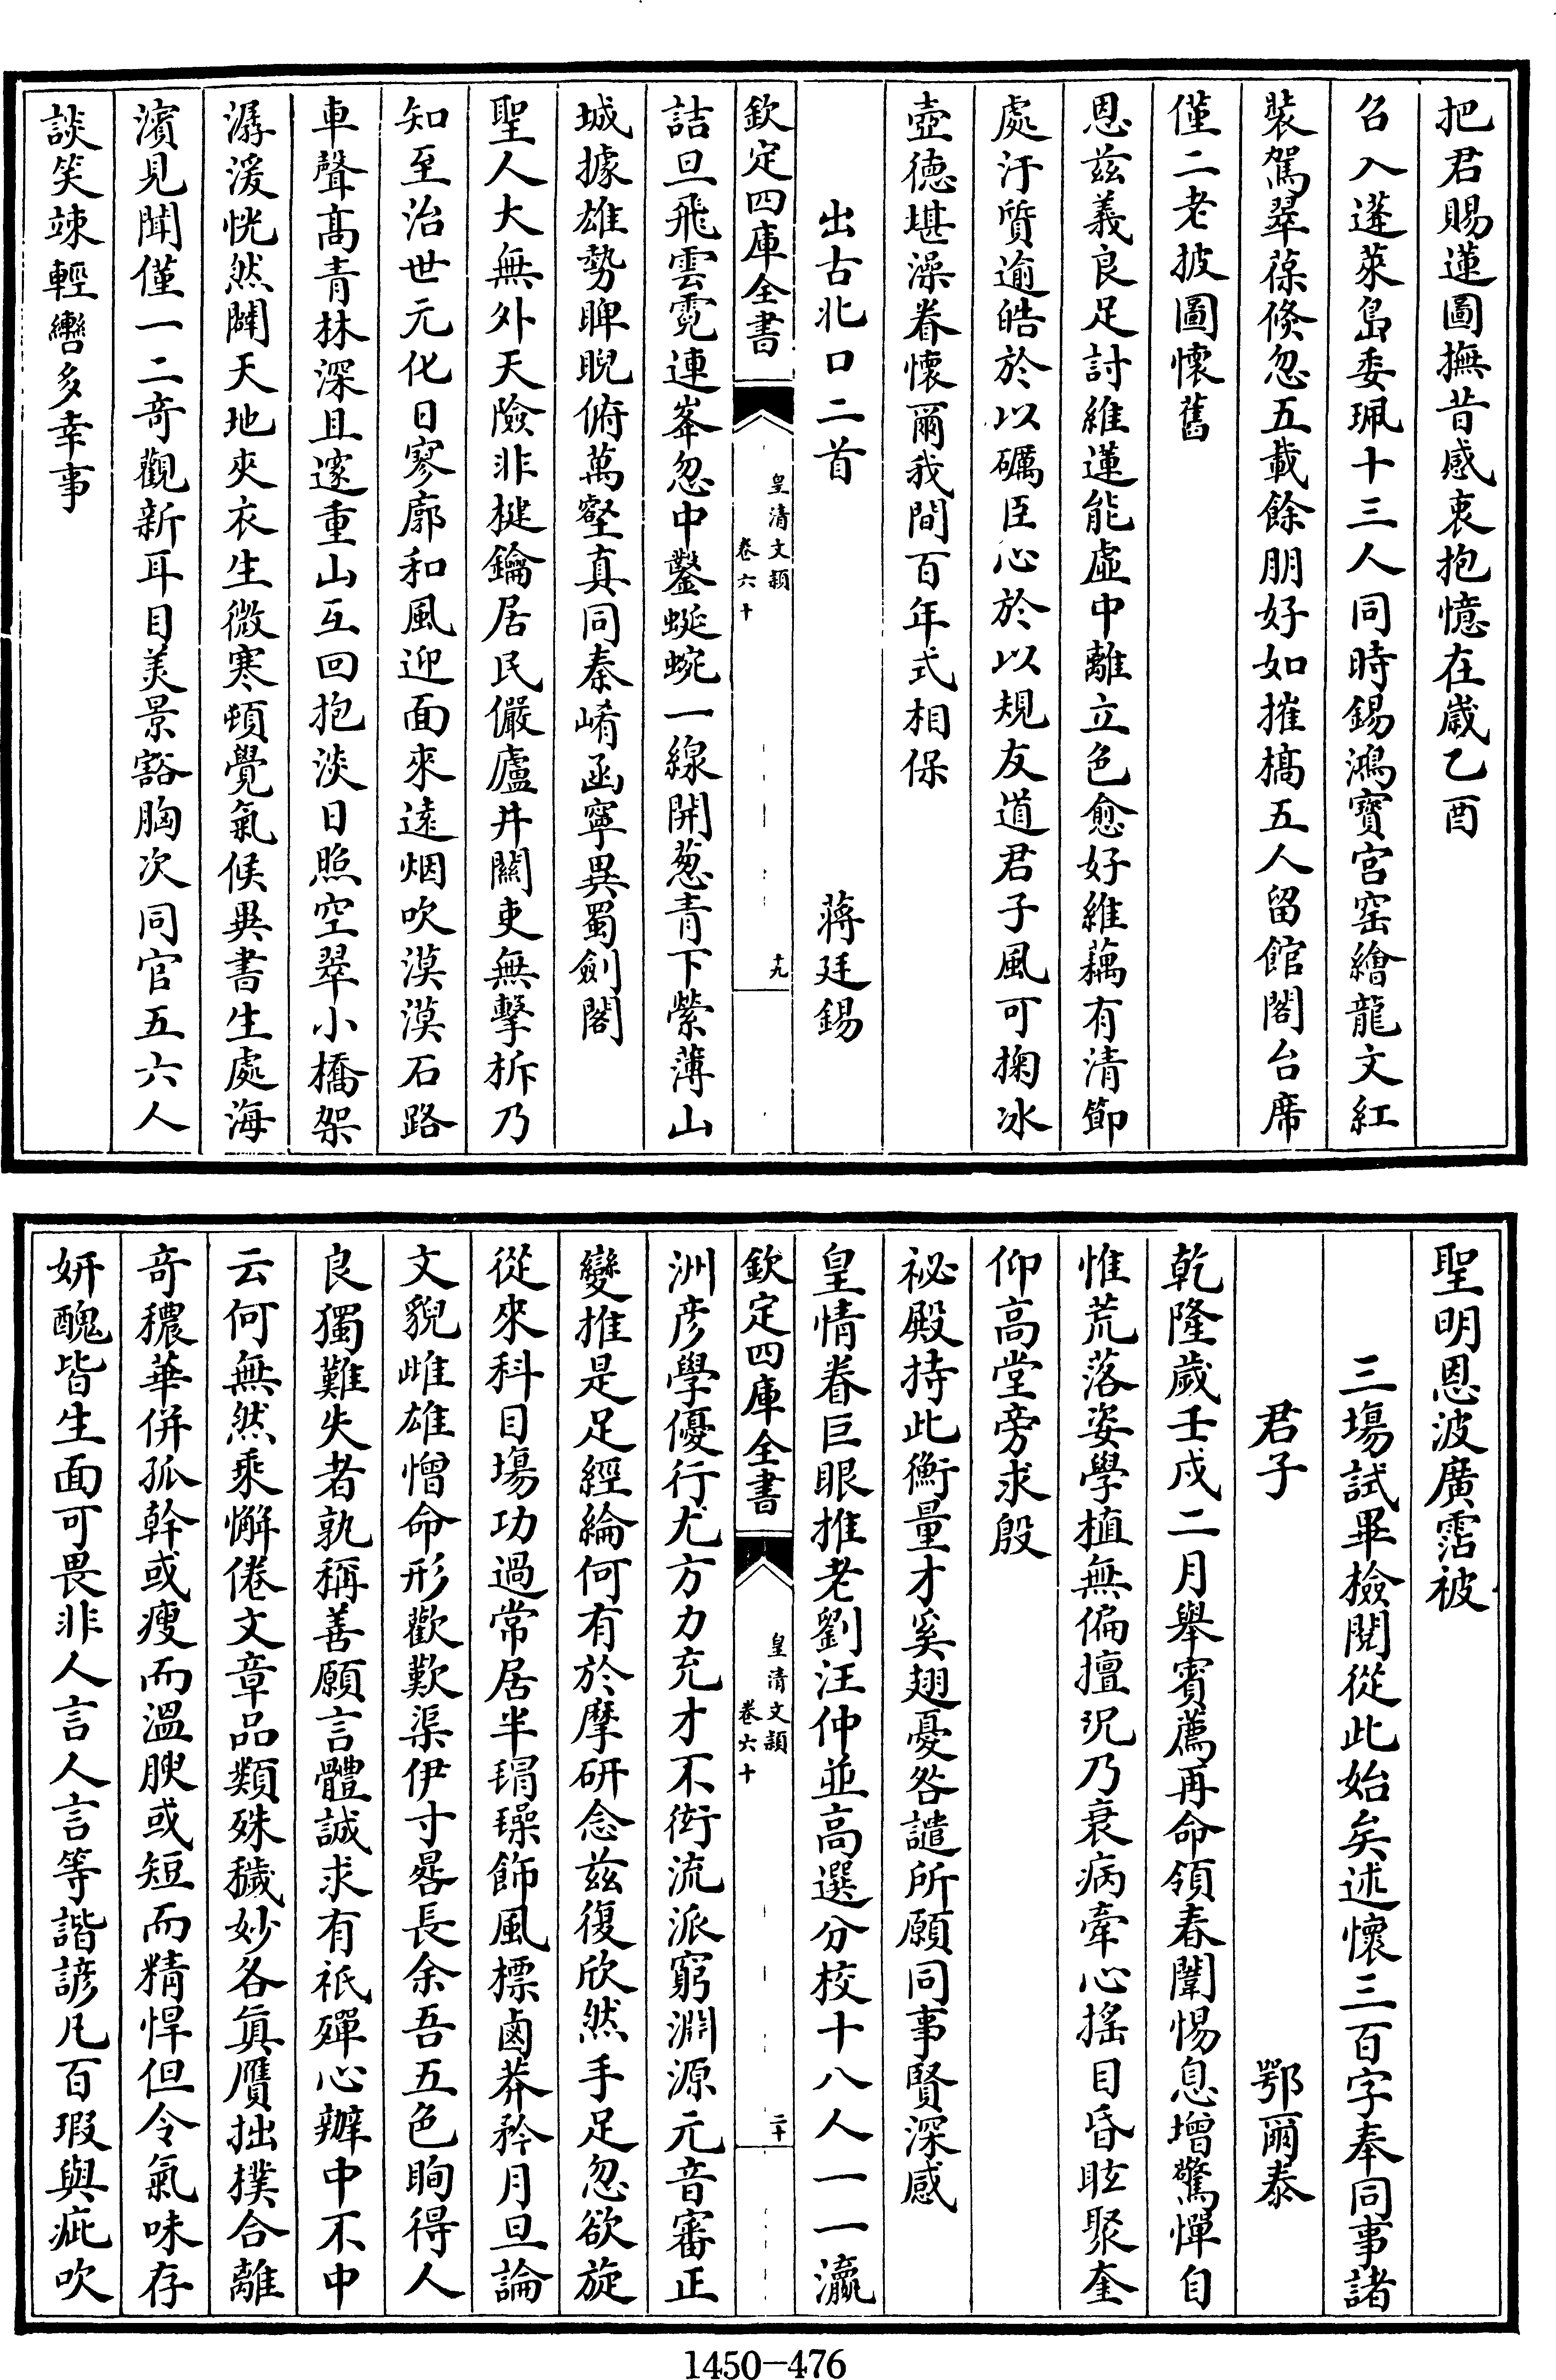 把君賜蓮圖撫昔感衷抱憶在歲乙酉
召入蓬萊島委珮十三人同時錫鴻寶宮窑繪龍文紅
裝駕翠葆倏忽五載餘朋好如摧槁五人留館閣台席
僅二老披圖懷舊
恩兹義良足討維蓮能虛中離立色愈好維藕有清節
處汙質逾皓於以礪臣心於以規友道君子風可掬冰
壺德堪澡眷懷爾我間百年式相保
出古北口二首 蔣廷錫
欽定四庫全書 皇清文穎 卷六十 十九
詰旦飛雲霓連峯忽中鑿蜒蜿一線開葱青下縈薄山
城據雄勢睥睨俯萬壑真同秦崤函寧異蜀劍閣
聖人大無外天險非楗鑰居民儼廬井關吏無擊柝乃
知至治世元化日寥廓和風迎面來遠烟吹漠漠石路
車聲高青林深且邃重山互回抱淡日照空翠小橋架
潺湲恍然闢天地夾衣生微寒頓覺氣候異書生處海
濱見聞僅一二奇觀新耳目美景豁胸次同官五六人
談笑竦輕轡多幸事
聖明恩波廣霑被
三塲試畢檢閱從此始矣述懷三百字奉同事諸
君子 鄂爾泰
乾隆歲壬戌二月舉賓薦再命領春闈惕息增驚憚自
惟荒落姿學植無偏擅況乃衰病牽心搖目昏眩聚奎
仰高堂旁求殷
祕殿持此衡量才奚翅憂咎譴所願同事賢深感
皇情眷巨眼推老劉汪仲並高選分校十八人一一瀛
欽定四庫全書 皇清文穎 卷六十 二十
洲彥學優行尤方力充才不衒流派窮淵源元音審正
變推是足經綸何有於摩研念兹復欣然手足忽欲旋
從來科目塲功過常居半琄璪飾風標鹵莽矜月旦論
文貎雌雄憎命形歡歎渠伊寸晷長余吾五色眴得人
良獨難失者孰稱善願言體誠求有祇殫心辦中不中
云何無然乘懈倦文章品類殊穢妙各眞贋拙撲合離
奇穠華併孤幹或瘦而溫腴或短而精悍但令氣味存
妍醜皆生面可畏非人言人言等諧諺凡百瑕與疵吹
1450-476